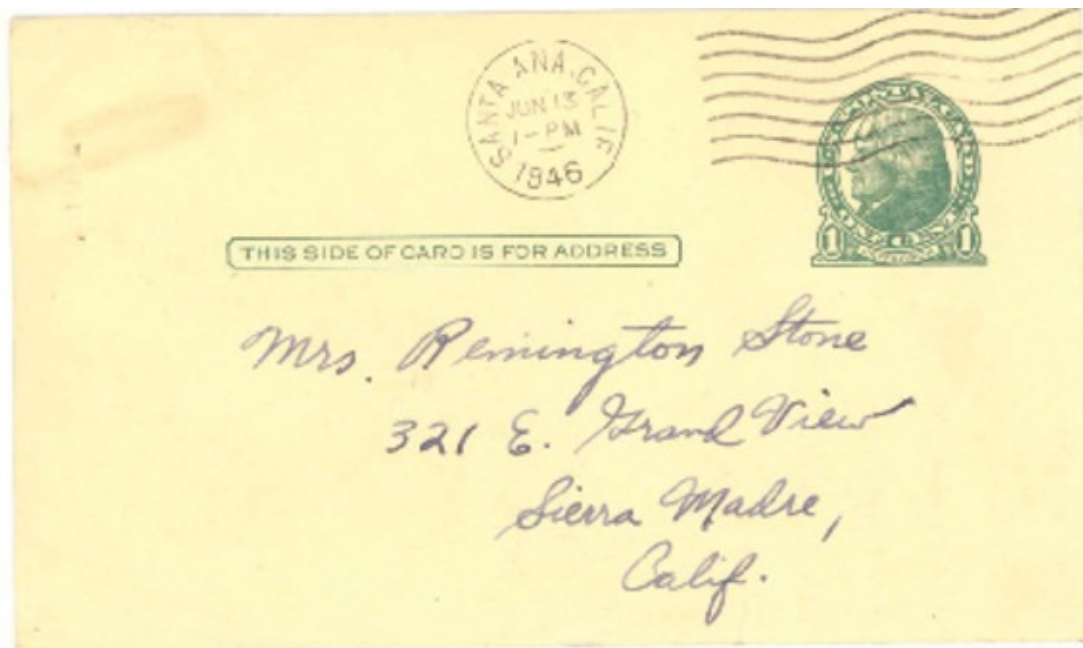 SANTA ANA, CALIF
JUN 13
1 - PM
1946
1 1
THIS SIDE OF CARD IS FOR ADDRESS
Mrs. Remington Stone
321 E. Grand View
Sierra Madre,
Calif.